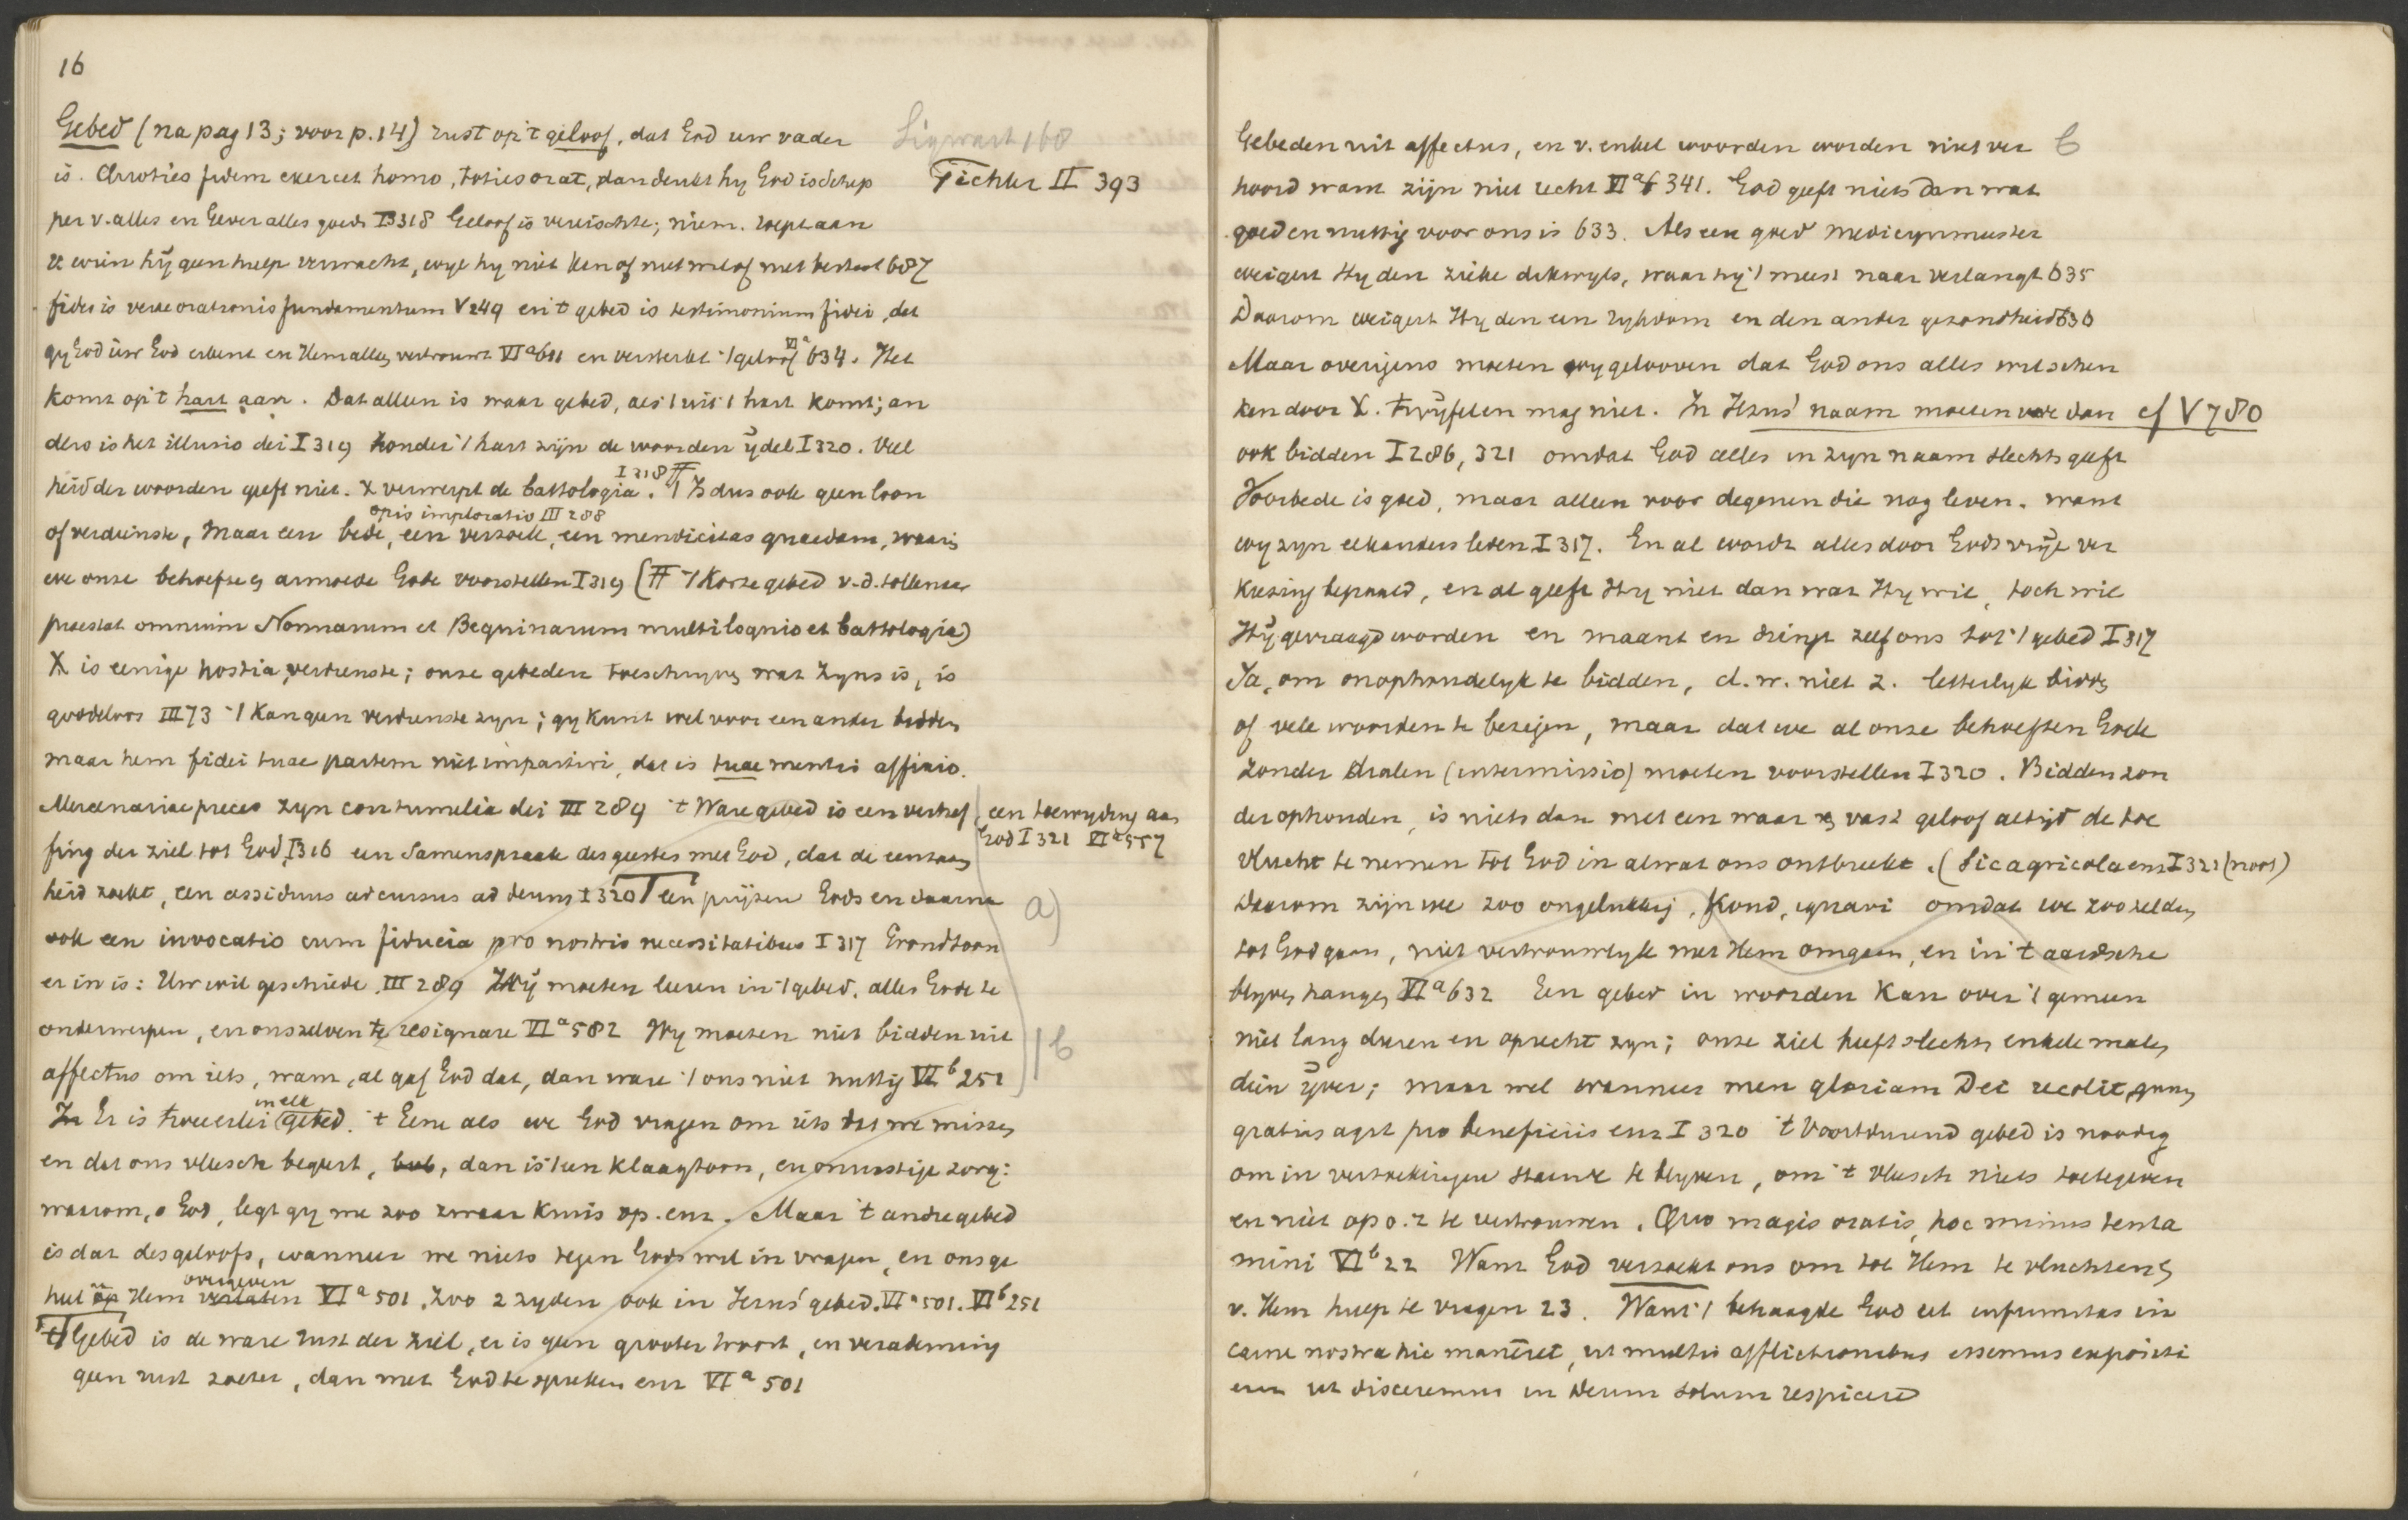 16
Gebed (na pag 13; voor p. 14) rust op 't geloof, dat God uw vader
Sigwart 168
is. Quoties fidem exercet homo, toties orat, dan denkt hy God is Schep
Tichler II 393
per v. alles en Gever alles goeds I 318 Geloof is vereischte; niem. roept aan
wien hij geen hulp verwacht, wyl hy niet ken of niet wil of niet bestaat 687
fides is verae orationis fundamentum V 249 en 't gebed is testimonium fidei, dat
gy God uw God erkent en Hem alles vertrouwt VI a 611 en versterkt 't geloof VI a 634. Het
komt op 't hart aan. Dat alleen is waar gebed, als 't uit 't hart komt; an
ders is het illusio dei I 319 Zonder 't hart zijn de woorden ijdel I 320. Veel
heid der woorden geeft niet. X verwerpt de battologia. I 318 # 't Is dus ook geen loon
of verdienste, maar een bede, een verzoek, opis imploratio III 288 een mendicitas quaedam, waarin
we onze behoefte en armoede Gode voorstellen I 319 (# 't Korte gebed v. d. tollenaar
praestat omnium Nonnarum et Beguinarum multiloquio et battologia)
X is eenige hostia, verdienste; onze gebeden toeschryven wat Zyns is, is
goddeloos III 73 't Kan geen verdienste zyn; gy kunt wel voor een ander bidden
maar hem fidei tuae partem niet impartiri, dat is tuae mentis affinio.
Mercenariae preces zyn contumelia dei III 289 't Ware gebed is een verhef
een toewyding aan
God I 321 VI a 557
fing der ziel tot God, I 316 een Samenspraak des geestes met God, dat de eenzaam
heid zoekt, een assiduus accursus ad deum I 320 een prijzen Gods en daarna
a)
ook een invocatio cum fiducia pro nostris necessitatibus I 317 Grondtoon
er in is: Uw wil geschiede. III 289 Wij moeten leeren in 't gebed, alles Gode te
onderwerpen, en onszelven te resignare VI a 582 Wy moeten niet bidden uit
b
affectus om iets, want, al gaf God dat, dan ware 't ons niet nuttig VI b 251
Er is tweeerlei in elk gebed. 't Eene als we God vragen om iets dat we missen
en dat ons vleesch begeert, dan is 't een klaagtoon, en onrustige zorg:
waarom, o God, legt gy me zoo zwaar kruis op. enz. Maar 't andre gebed
is dat des geloofs, wanneer we niets tegen Gods wil in vragen, en ons ge
heel aan Hem overgeven VI a 501. Zoo 2 zyden ook in Jezus' gebed. VI a 501. VI b 251
't Gebed is de ware rust der ziel, er is geen grooter troost, en verademing
geen rust zoeter, dan met God te spreken enz VI a 501
Gebeden uit affectus, en v. enkel woorden worden niet ver
b
hoord want zijn niet recht VI a 341. God geeft niets dan wat
goed en nuttig voor ons is 633. Als een goed medicynmeester
weigert Hy den zieke dikwyls, waar hij 't meest naar verlangt 635
Daarom weigert Hy den een rykdom en den ander gezondheid 636
Maar overigens moeten wy gelooven dat God ons alles wil schen
ken door X. twijfelen mag niet. In Jezus' naam moeten we dan
cf V 780
ook bidden I 286, 321 omdat God alles in zyn naam slechts geeft
Voorbede is goed, maar alleen voor degenen die nog leven. want
wy zyn elkanders leden I 317. En al wordt alles door Gods vrije ver
kiezing bepaald, en al geeft Hy niet dan wat Hy wil, toch wil
Hij gevraagd worden en maant en dringt zelf ons tot 't gebed I 317
Ja, om onophoudelyk te bidden, d. w. niet z. letterlyk bidden
of vele woorden te bezigen, maar dat we al onze behoeften Gode
zonder dralen (intermissio) moeten voorstellen I 320. Bidden zon
der ophouden, is niets dan met een waar en vast geloof altijd de toe
vlucht te nemen tot God in alwat ons ontbreekt. (Sic agricola enz I 321 (noot)
Daarom zijn we zoo ongelukkig, Koud, ignavi omdat we zoo zelden
tot God gaan, niet vertrouwlyk met Hem omgaan, en in 't aardsche
blyven hangen VI a 632 Een gebed in woorden kan over 't gemeen
niet lang duren en oprecht zyn; onze ziel heeft slechts enkele malen
dien ijver; maar wel wanneer men gloriam Dei recolit,
gratias agit pro beneficiis enz I 320 't Voortdurend gebed is noodig
om in verzoekingen staande te blyven, om 't vleesch niets toetegeven
en niet op o. z te vertrouwen. Quo magis oratis, hoc minus tenta
mini VI b 22 Want God verzoekt ons om tot Hem te vluchten en
v. Hem hulp te vragen 23. Want 't behaagde God ut infirmitas in
carne nostra hic maneret, ut multis afflictionibus essemus expositi
enz ut disceremus in Deum solum respicere